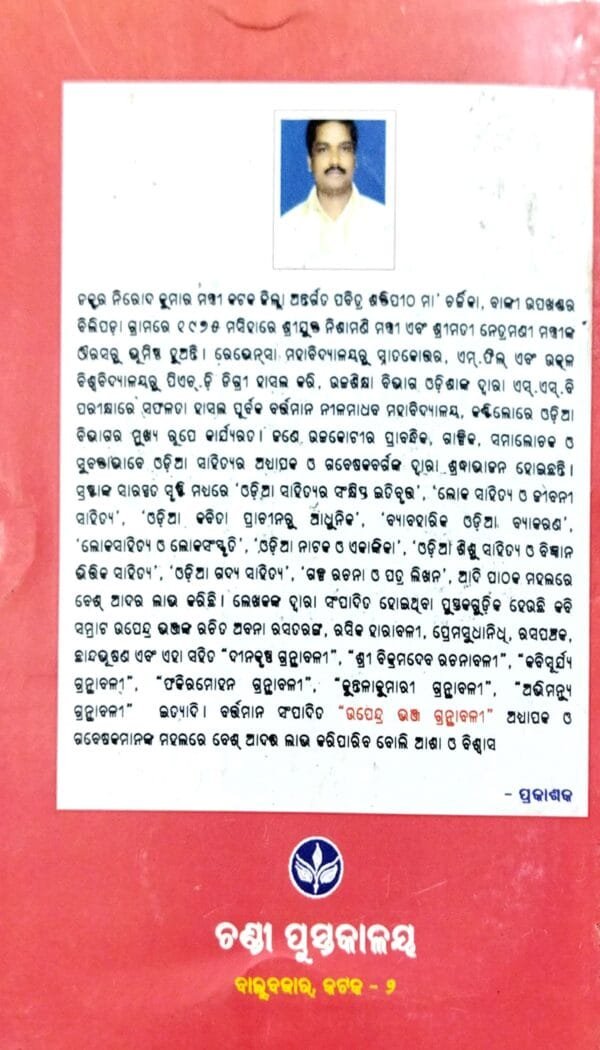 ଡକ୍ଟର ନିରୋଦ କୁମାର ମନ୍ତ୍ରୀ କଟକ ଜିଲ୍ଲା ଅନ୍ତର୍ଗତ ପବିତ୍ର ଶକ୍ତିପୀଠ ମା' ଚର୍ଚ୍ଚିକା, ବାଙ୍କୀ ଉପଖଣ୍ଡର
ବିଲିପଡ଼ା ଗ୍ରାମରେ ୧୯୭୫ ମସିହାରେ ଶ୍ରୀଯୁକ୍ତ ନିଶାମଣି ମନ୍ତ୍ରୀ ଏବଂ ଶ୍ରୀମତୀ ନେତ୍ରମଣୀ ମନ୍ତ୍ରୀଙ୍କ
ଔରସରୁ ଭୂମିଷ୍ଠ ହୁଅନ୍ତି। ରେଭେନ୍ସା ମହାବିଦ୍ୟାଳୟରୁ ସ୍ନାତକୋତ୍ତର, ଏମ୍.ଫିଲ୍ ଏବଂ ଉତ୍କଳ
ବିଶ୍ୱବିଦ୍ୟାଳୟରୁ ପିଏଚ୍.ଡ଼ି ଡିଗ୍ରୀ ହାସଲ କରି, ଉଚ୍ଚଶିକ୍ଷା ବିଭାଗ ଓଡ଼ିଶାଙ୍କ ଦ୍ୱାରା ଏସ୍.ଏସ୍.ବି
ପରୀକ୍ଷାରେ ସଫଳତା ହାସଲ ପୂର୍ବକ ବର୍ତ୍ତମାନ ନୀଳମାଧବ ମହାବିଦ୍ୟାଳୟ, କଣ୍ଟିଲୋରେ ଓଡ଼ିଆ
ବିଭାଗର ମୁଖ୍ୟ ରୂପେ କାର୍ଯ୍ୟରତ। ଜଣେ ଉଚ୍ଚକୋଟୀର ପ୍ରାବନ୍ଧିକ, ଗାଳ୍ପିକ, ସମାଲୋଚକ ଓ
ସୁବକ୍ତାଭାବେ ଓଡ଼ିଆ ସାହିତ୍ୟର ଅଧ୍ୟାପକ ଓ ଗବେଷକବର୍ଗଙ୍କ ଦ୍ୱାରା ଶ୍ରଦ୍ଧାଭାଜନ ହୋଇଛନ୍ତି।
ସ୍ରଷ୍ଟାଙ୍କ ସାରସ୍ୱତ ସୃଷ୍ଟି ମଧ୍ୟରେ 'ଓଡ଼ିଆ ସାହିତ୍ୟର ସଂକ୍ଷିପ୍ତ ଇତିବୃତ୍ତ', 'ଲୋକ ସାହିତ୍ୟ ଓ ଜୀବନୀ
ସାହିତ୍ୟ', 'ଓଡ଼ିଆ କବିତା ପ୍ରାଚୀନରୁ ଆଧୁନିକ', 'ବ୍ୟାବହାରିକ ଓଡ଼ିଆ ବ୍ୟାକରଣ',
'ଲୋକସାହିତ୍ୟ ଓ ଲୋକସଂସ୍କୃତି', 'ଓଡ଼ିଆ ନାଟକ ଓ ଏକାଙ୍କିକା', 'ଓଡ଼ିଆ ଶିଶୁ ସାହିତ୍ୟ ଓ ବିଜ୍ଞାନ
ଭିତ୍ତିକ ସାହିତ୍ୟ', 'ଓଡ଼ିଆ ଗଦ୍ୟ ସାହିତ୍ୟ', 'ଗଳ୍ପ ରଚନା ଓ ପତ୍ର ଲିଖନ', ଆଦି ପାଠକ ମହଲରେ
ବେଶ୍ ଆଦର ଲାଭ କରିଛି। ଲେଖକଙ୍କ ଦ୍ୱାରା ସଂପାଦିତ ହୋଇଥିବା ପୁସ୍ତକଗୁଡ଼ିକ ହେଉଛି କବି
ସମ୍ରାଟ ଉପେନ୍ଦ୍ର ଭଞ୍ଜଙ୍କ ରଚିତ ଅବନା ରସତରଙ୍ଗ, ରସିକ ହାରାବଳୀ, ପ୍ରେମସୁଧାନିଧି, ରସପଞ୍ଚକ,
ଛାନ୍ଦଭୂଷଣ ଏବଂ ଏହା ସହିତ "ଦୀନକୃଷ୍ଣ ଗ୍ରନ୍ଥାବଳୀ", "ଶ୍ରୀ ବିକ୍ରମଦେବ ରଚନାବଳୀ", "କବିସୂର୍ଯ୍ୟ
ଗ୍ରନ୍ଥାବଳୀ", "ଫକିରମୋହନ ଗ୍ରନ୍ଥାବଳୀ", "କୁନ୍ତଳାକୁମାରୀ ଗ୍ରନ୍ଥାବଳୀ", "ଅଭିମନ୍ୟୁ
ଗ୍ରନ୍ଥାବଳୀ" ଇତ୍ୟାଦି। ବର୍ତ୍ତମାନ ସଂପାଦିତ "ଉପେନ୍ଦ୍ର ଭଞ୍ଜ ଗ୍ରନ୍ଥାବଳୀ" ଅଧ୍ୟାପକ ଓ
ଗବେଷକମାନଙ୍କ ମହଲରେ ବେଶ୍ ଆଦର ଲାଭ କରିପାରିବ ବୋଲି ଆଶା ଓ ବିଶ୍ୱାସ
– ପ୍ରକାଶକ
ଚଣ୍ଡୀ ପୁସ୍ତକାଳୟ
ବାଲୁବଜାର, କଟକ – ୨